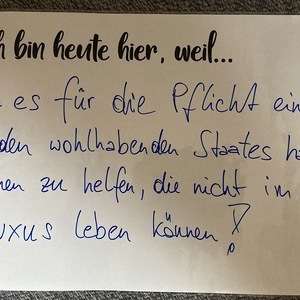 h bin heute hier, weil...
es für die Pflicht ein
den wohlhabenden Staates ha
nen zu helfen, die nicht im
uxus leben können!